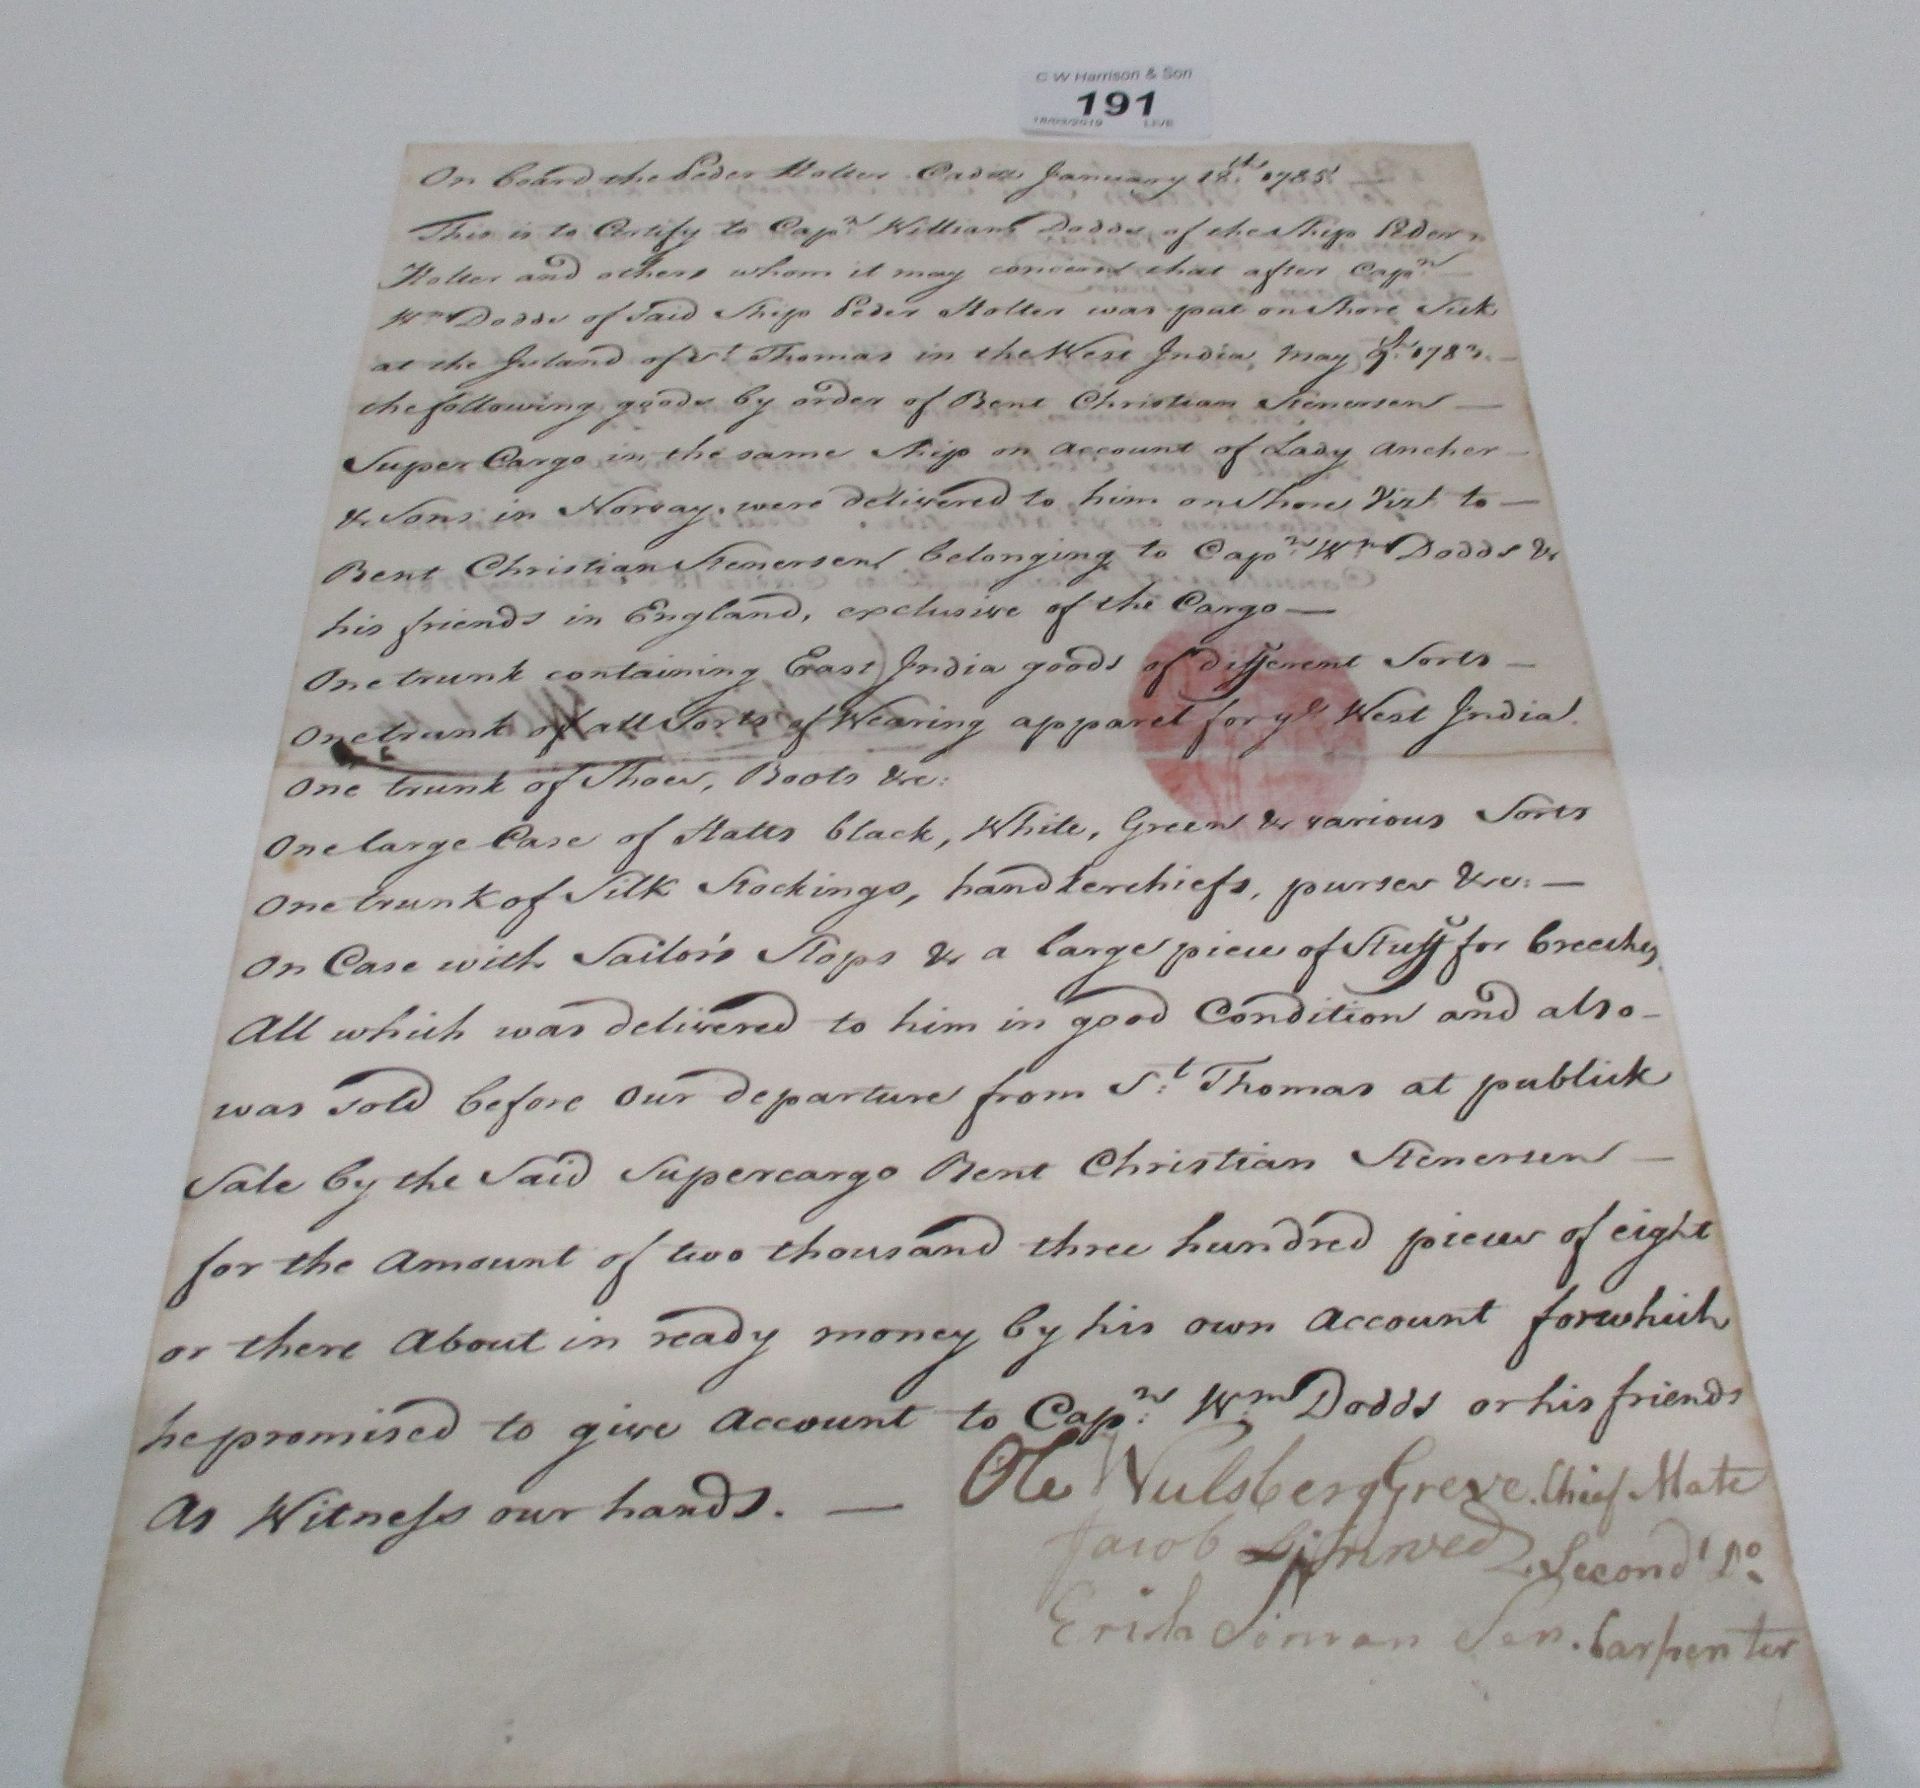 C W Harrison & Son
191
18/03/2019 LIVE
On board the Peder Holter Cadiz January 12th. 1785. —
This is to Certify to Capn. William Dodds of the Ship Peder
Holter and others whom it may concern that after Capn. —
Wm Dodds of Said Ship Peder Holter was put on Shore Sick
at the Island of St. Thomas in the West India, May 9th. 1783. —
the following goods by order of Bent Christian Stenersen —
Super Cargo in the same Ship on Account of Lady Ancher —
& Sons in Norway, were delivered to him on Shore Vizt. to —
Bent Christian Stenersen belonging to Capn. Wm Dodds &
his friends in England, exclusive of the Cargo —
One trunk containing East India goods of different Sorts —
One trunk of all Sorts of Wearing apparel for ye West India.
One trunk of Shoes, Boots &c:
One large Case of Hatts black, White, Green & various Sorts
One trunk of Silk Stockings, handkerchiefs, purses &c: —
On Case with Sailor's Slops & a large piece of Stuff for breeches,
All which was delivered to him in good Condition and also —
was sold before our departure from St. Thomas at publick
Sale by the Said Supercargo Bent Christian Stenersen —
for the Amount of two thousand three hundred pieces of eight
or there About in ready money by his own Account for which
he promised to give Account to Capn. Wm. Dodds or his friends
As Witness our hands. —
Ole Wulsberg Greve. Chief Mate
Jacob Second Do.
Erich Siman Sen. Carpenter